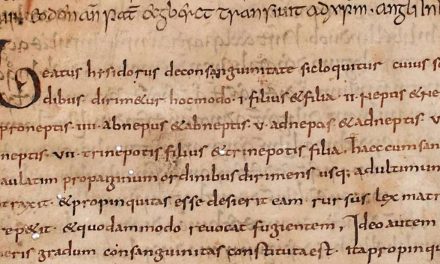 eodem añ egberct transivit ad xpm · angli
Beatus hesidorus deconsanguinitate sicloquitur cuius s
dibus dirimitur hocmodo · i filius & filia · ii · nepus & ne
proneptis · iiii · abnepus & abneptis · v · adnepus & adneptis · v
neptis · vii · trinepotis filius & trinepotis filia · haec cumsan
aulatim propaginum ordinibus dirimens usq; adultimum
traxit · & propinquitas esse desierit eam rursus lex matri
repetit · & quodammodo revocat fugientem, Ideo autem
eneris gradum consanguinitas constituta est · ita propinqu